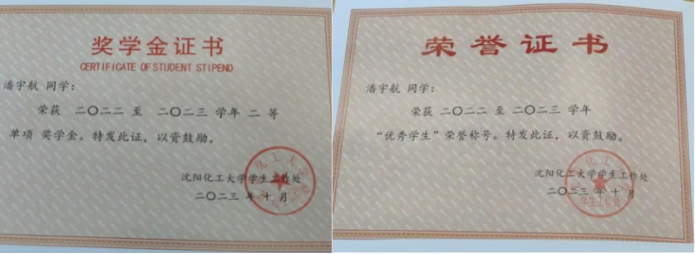 奖学金证书
CERTIFICATE OF STUDENT STIPEND
潘宇航 同学：
荣获 二〇二二 至 二〇二三 学年 二 等
单项 奖学金。特发此证，以资鼓励。
沈阳化工大学学生工作处
二〇二三 年 十 月
荣誉证书
潘宇航 同学：
荣获 二〇二二 至 二〇二三 学年
“优秀学生”荣誉称号。特发此证，以资鼓励。
沈阳化工大学学生工作处
二〇二三 年 十 月